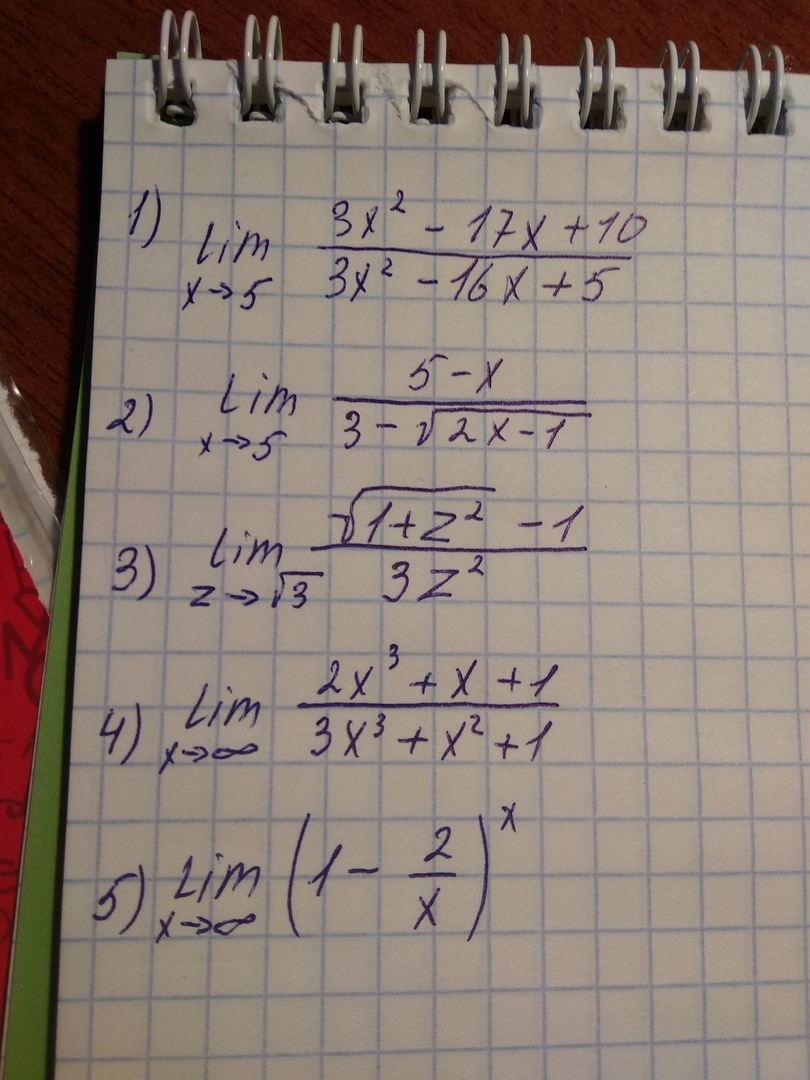 1) lim x→5 (3x² - 17x + 10)/(3x² - 16x + 5)
2) lim x→5 (5 - x)/(3 - √(2x - 1))
3) lim z→√3 (√(1 + z²) - 1)/(3z²)
4) lim x→∞ (2x³ + x + 1)/(3x³ + x² + 1)
5) lim x→∞ (1 - 2/x)ˣ